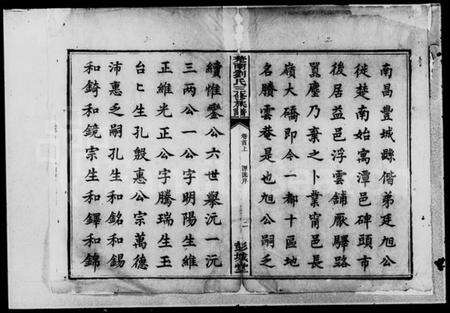 南昌豐城縣偕弟廷旭公
徙楚南始寓潭邑碑頭市
後居益邑浮雲鋪厭驛路
囂塵乃棄之卜業甯邑長
嶺大礄即今一都十區地
名騰雲菴是也旭公嗣之
楚南劉氏三修族譜
卷首上
源流序
彭城堂
續惟鑒公六世舉沅一沅
三兩公一公字明陽生維
正維光正公字騰瑞生王
台生孔殷惠公宗萬德
沛惠之嗣孔生和銘和錫
和錡和鏡宗生和鐸和錦